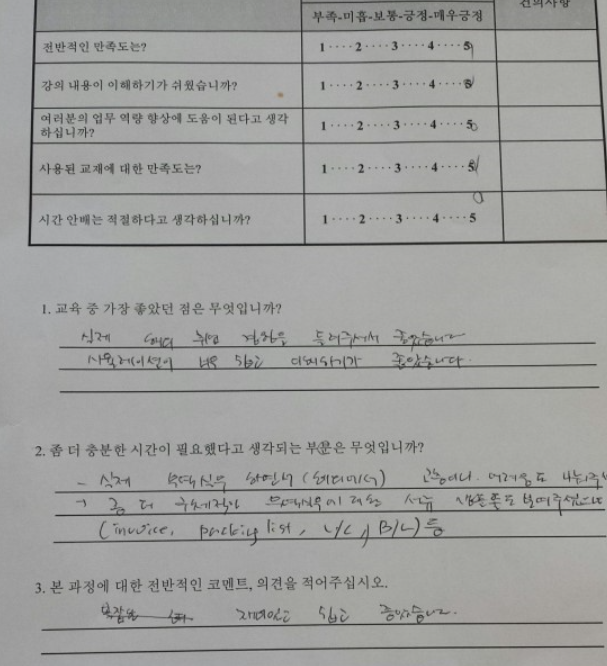 건의사항
부족-미흡-보통-긍정-매우긍정
전반적인 만족도는? 1····2····3····4····5
강의 내용이 이해하기가 쉬웠습니까? 1····2····3····4····5
여러분의 업무 역량 향상에 도움이 된다고 생각
하십니까? 1····2····3····4····5
사용된 교재에 대한 만족도는? 1····2····3····4····5
시간 안배는 적절하다고 생각하십니까? 1····2····3····4····5
1. 교육 중 가장 좋았던 점은 무엇입니까?
실제 해외 취업 경험을 들려주셔서 좋았습니다
쉽고 이해하기가 좋았습니다.
2. 좀 더 충분한 시간이 필요했다고 생각되는 부분은 무엇입니까?
- 실제 무역실무
→ 좀 더 구체적인 무역실무에 대한 서류 샘플들도 보여주셨으면
(invoice, packing list, L/C, B/L) 등
3. 본 과정에 대한 전반적인 코멘트, 의견을 적어주십시오.
재미있고 쉽고 좋았습니다.